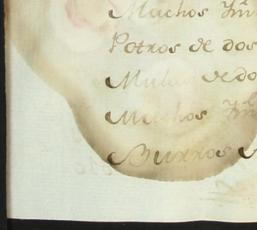 Machos Ym
Potros de dos
Mulas de do
Machos Ym
Burros